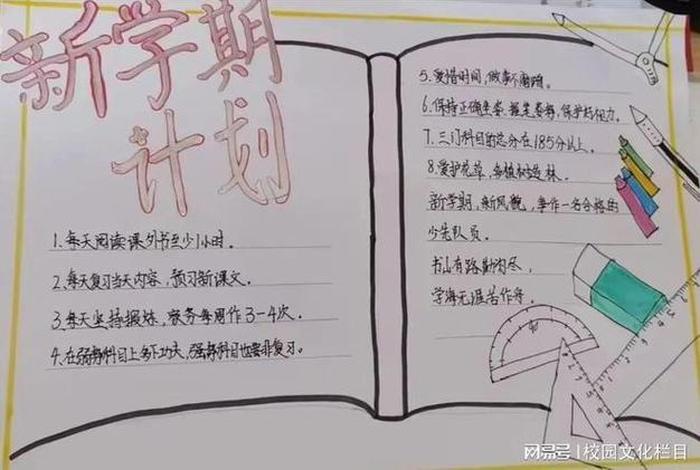 新学期
计划
1.每天阅读课外书至少1小时。
2.每天复习当天内容，预习新课文。
3.每天坚持锻炼，家务每周作3-4次。
4.在弱势科目上多下功夫，强势科目也要非复习。
5.爱惜时间，做事不磨蹭。
6.保持正确坐姿、握笔姿势，保护好视力。
7.三门科目的总分在185分以上。
8.爱护花草，多植树造林。
新学期，新风貌，争作一名合格的
少先队员。
书山有路勤为尽，
学海无涯苦作舟。
网易号 | 校园文化栏目